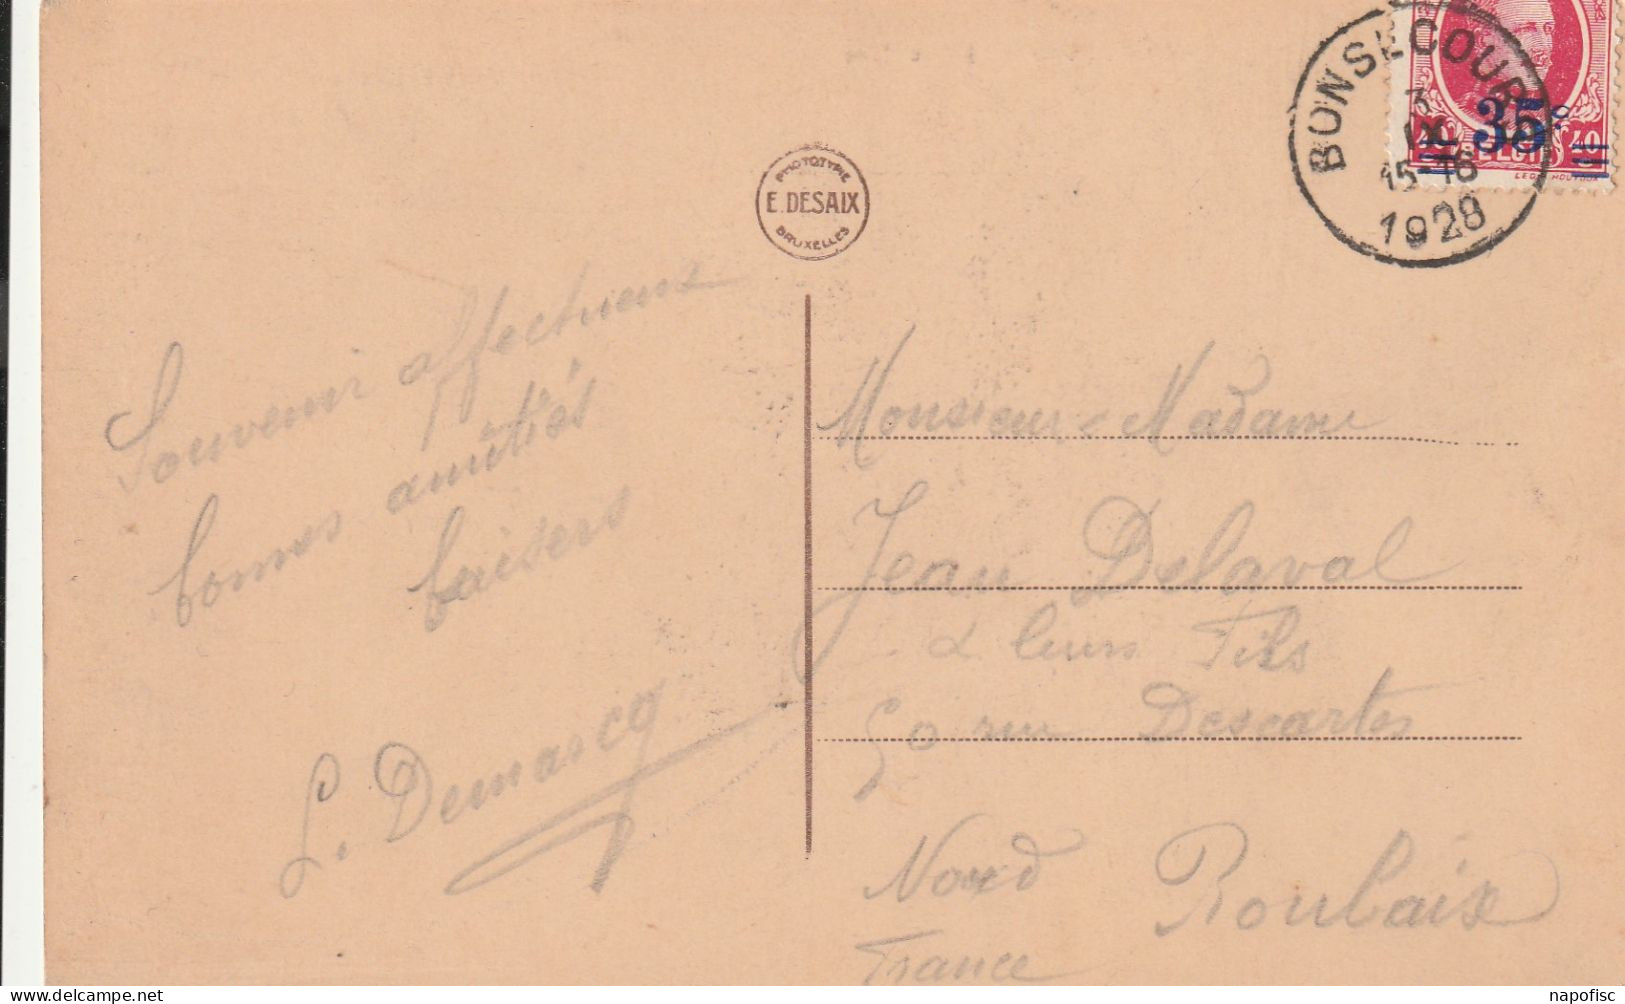 BONSECOUR
3
IX
15-16
1928
35c
40 40
BELGI
PHOTOTYPIE
E. DESAIX
BRUXELLES
Souvenir affectueux
bonnes amitiés
baisers
L. Demarcq
Monsieur & Madame
Jean Delaval
& leurs Fils
50 rue Descartes
Nord Roubaix
France
napofisc